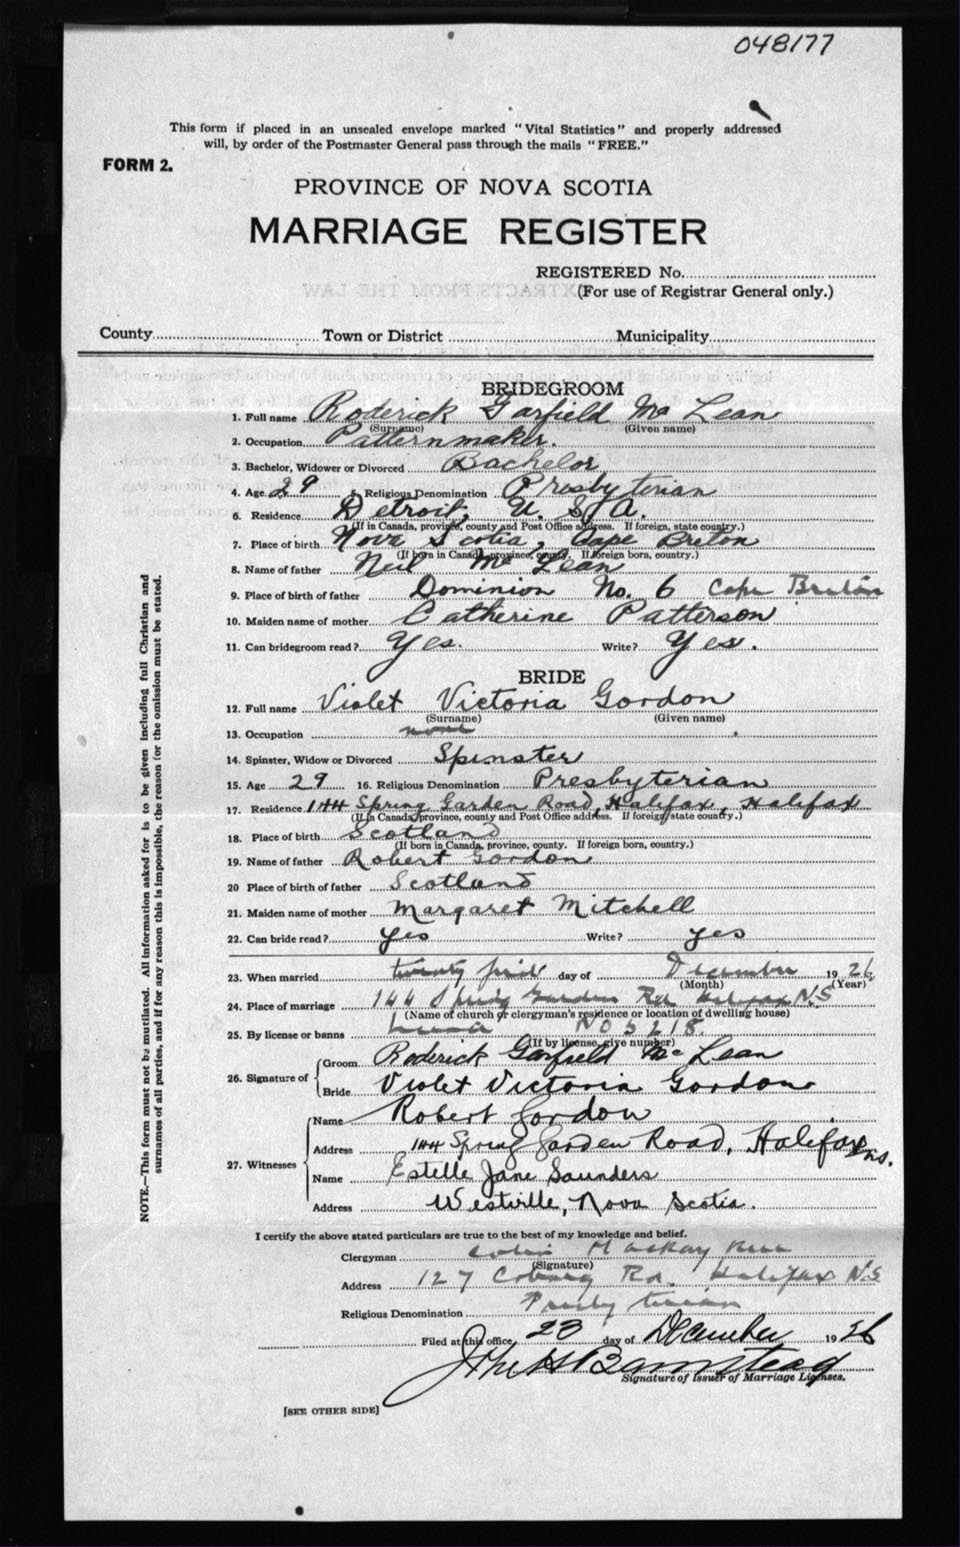 048177
This form if placed in an unsealed envelope marked "Vital Statistics" and properly addressed
will, by order of the Postmaster General pass through the mails "FREE."
FORM 2.
PROVINCE OF NOVA SCOTIA
MARRIAGE REGISTER
REGISTERED No.
(For use of Registrar General only.)
EXTRACTS FROM THE LAW
County Town or District Municipality
BRIDEGROOM
1. Full name Roderick Garfield Mc Lean
(Surname) (Given name)
2. Occupation Patternmaker.
3. Bachelor, Widower or Divorced Bachelor
4. Age 29 5. Religious Denomination Presbyterian
6. Residence Detroit, U. S. A.
(If in Canada, province, county and Post Office address. If foreign, state country.)
7. Place of birth Nova Scotia, Cape Breton
(If born in Canada, province, county. If foreign born, country.)
8. Name of father Neil Mc Lean
9. Place of birth of father Dominion No. 6 Cape Breton
10. Maiden name of mother Catherine Patterson
11. Can bridegroom read? Yes. Write? Yes.
BRIDE
12. Full name Violet Victoria Gordon
(Surname) (Given name)
13. Occupation none
14. Spinster, Widow or Divorced Spinster
15. Age 29 16. Religious Denomination Presbyterian
17. Residence 144 Spring Garden Road, Halifax, Halifax
(If in Canada, province, county and Post Office address. If foreign, state country.)
18. Place of birth Scotland
(If born in Canada, province, county. If foreign born, country.)
19. Name of father Robert Gordon
20 Place of birth of father Scotland
21. Maiden name of mother Margaret Mitchell
22. Can bride read? yes Write? yes
23. When married twenty day of December 1926
(Month) (Year)
24. Place of marriage 144 Spring Garden Rd Halifax N.S
(Name of church or clergyman's residence or location of dwelling house)
25. By license or banns No 5218.
(If by license, give number)
26. Signature of Groom Roderick Garfield Mc Lean
Bride Violet Victoria Gordon
27. Witnesses Name Robert Gordon
Address 144 Spring Garden Road, Halifax N.S.
Name Estelle Jane Saunders
Address Westville, Nova Scotia.
I certify the above stated particulars are true to the best of my knowledge and belief.
Clergyman Colin Mackay
(Signature)
Address 127 Coburg Rd. Halifax N.S
Religious Denomination Presbyterian
Filed at this office, 23 day of December 1926
John H Barnstead
Signature of Issuer of Marriage Licenses.
[SEE OTHER SIDE]
NOTE.—This form must not be mutilated. All information asked for is to be given including full Christian and
surnames of all parties, and if for any reason this is impossible, the reason for the omission must be stated.